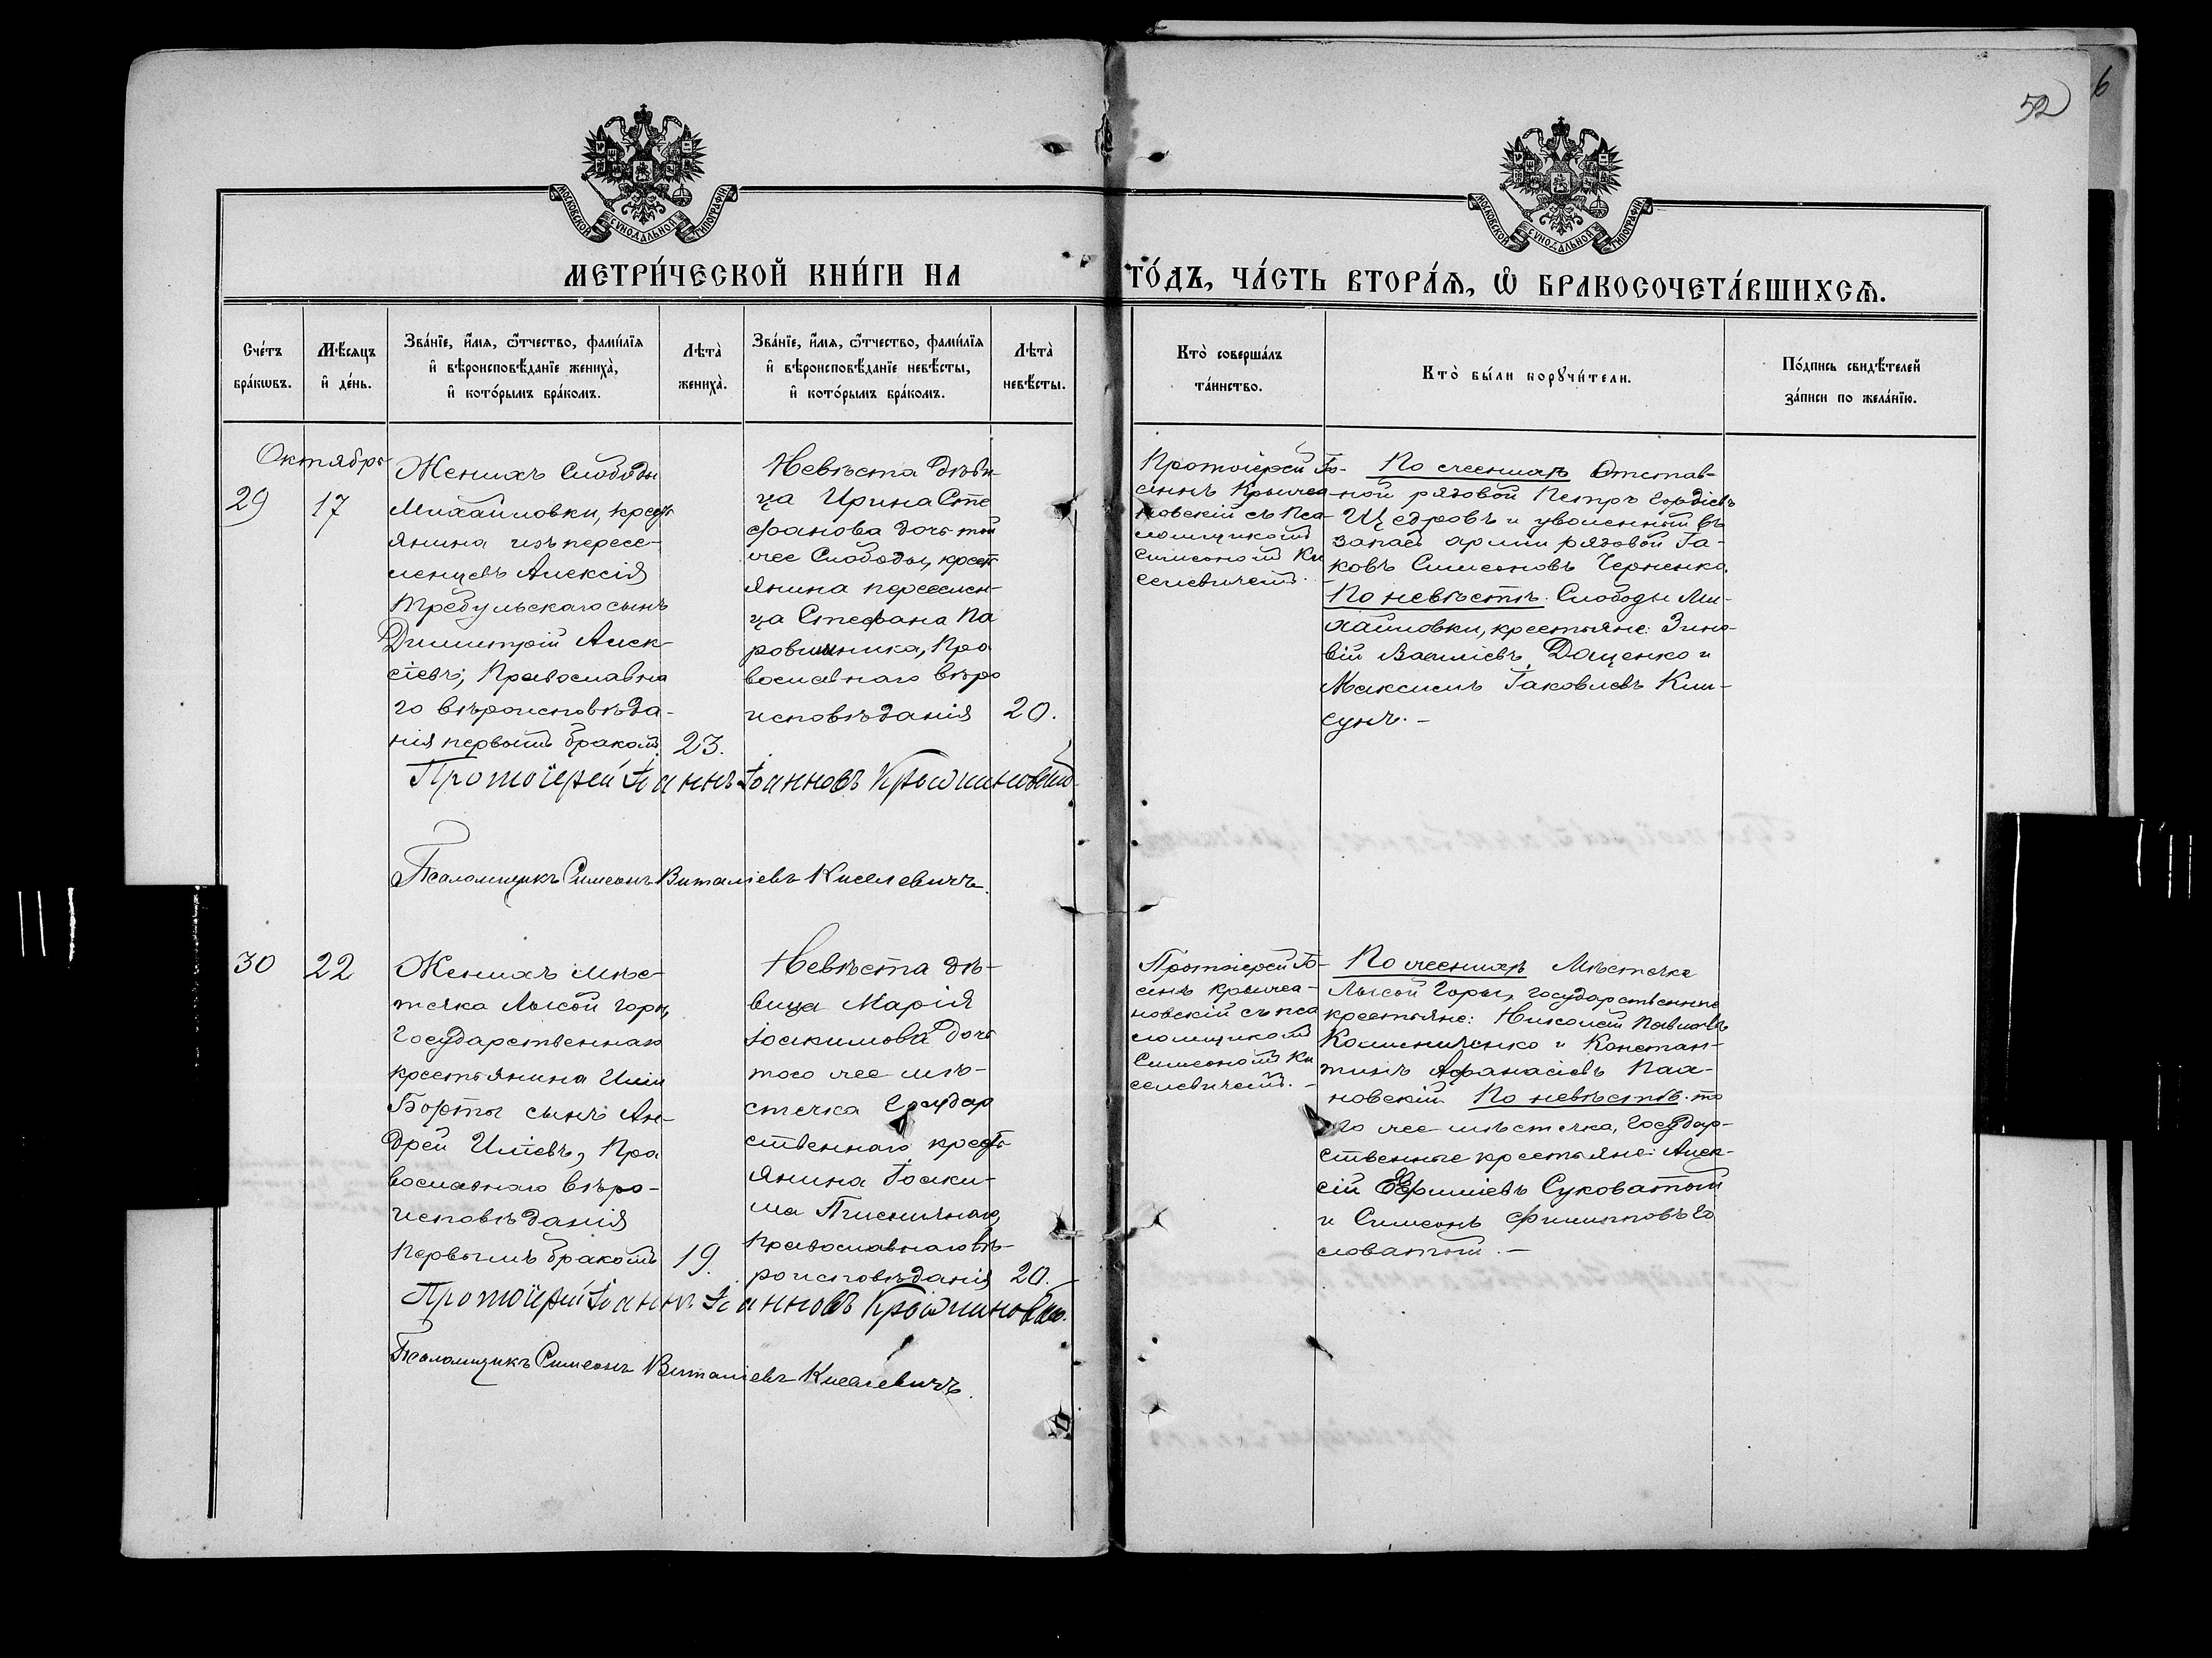 52
6
МОСКОВСКОЙ СѴНОДАЛЬНОЙ ТИПОГРАФІИ
МОСКОВСКОЙ СѴНОДАЛЬНОЙ ТИПОГРАФІИ
МЕТРИ́ЧЕСКОЙ КНИ́ГИ НА
ГО́ДЪ, ЧА́СТЬ ВТОРА́Ѧ, Ѡ҆ БРАКОСОЧЕТА́ВШИХСѦ.
Сче́тъ
бра́кѡвъ.
Мѣ́сяцъ
и҆ де́нь.
Зва́нїе, и҆́мя, ѻ҆́тчество, фами́лїя
и҆ вѣроисповѣ́данїе жениха̀,
и҆ кото́рымъ бра́комъ.
Лѣта̀
жениха̀.
Зва́нїе, и҆́мя, ѻ҆́тчество, фами́лїя
и҆ вѣроисповѣ́данїе невѣ́сты,
и҆ кото́рымъ бра́комъ.
Лѣта̀
невѣ́сты.
Кто̀ соверша́лъ
та́инство.
Кто̀ бы́ли порꙋчи́тели.
По́дпись свидѣ́телей
за́писи по жела́нїю.
Октябрь
29
17
Женихъ Слободы
Михайловки, крестъ
янина изъ пересе-
ленцевъ Алексія
Требульскаго сынъ
Димитрій Алек-
сіевъ; Православна
го вѣроисповѣда-
нія первымъ бракомъ
23.
Невѣста дѣви-
ца Ирина Сте
фанова дочь той
же Слободы, крест
янина переселен-
ца Стефана Па
ровишника, Пра
вославнаго вѣро
исповѣданія
20.
Протоіерей Іо-
аннъ Крыжа-
новскій съ Пса-
ломщикомъ
Симеономъ Ки
селевичемъ.
По женихѣ Отстав-
ной рядовой Петръ Гордіевъ
Щедровъ и уволенный въ
запасъ арміи рядовой Іа-
ковъ Симеоновъ Черненко.
По невѣстѣ. Слободы Ми-
хайловки, крестьяне: Зино-
вій Василіевъ Даценко и
Максимъ Іаковлевъ Кли-
сунъ. -
Протоіерей Іоаннъ Іоанновъ Крыжановскій
Псаломщикъ Симеонъ Виталіевъ Киселевичъ.
30
22
Женихъ мѣс-
течка Лысой горы,
Государственнаго
крестьянина Иліи
Борты сынъ Ан-
дрей Иліевъ, Пра
вославнаго вѣро-
исповѣданія
Первымъ бракомъ
19.
Невѣста дѣ-
вица Марія
Іоакимова дочь
того же мѣ-
стечка Государ
ственнаго кресть
янина Іоаки-
ма Письмяннаго,
Православнаго вѣ-
роисповѣданія
20.
Протоіерей Іо-
аннъ Крыжа-
новскій съ пса
ломщикомъ
Симеономъ Ки
селевичемъ. -
По женихѣ Мѣстечка
Лысой Горы, государственные
крестьяне: Николай Павловъ
Калиниченко и Констан-
тинъ Афанасіевъ Паа-
новскій По невѣстѣ. то
го же мѣстечка, Государ-
ственные крестьяне: Алек-
сій Ефриміевъ Суковатый
и Симеонъ Филипповъ Го
ловатый. -
Протоіерей Іоаннъ Іоанновъ Крыжановскій.
Псаломщикъ Симеонъ Виталіевъ Киселевичъ.